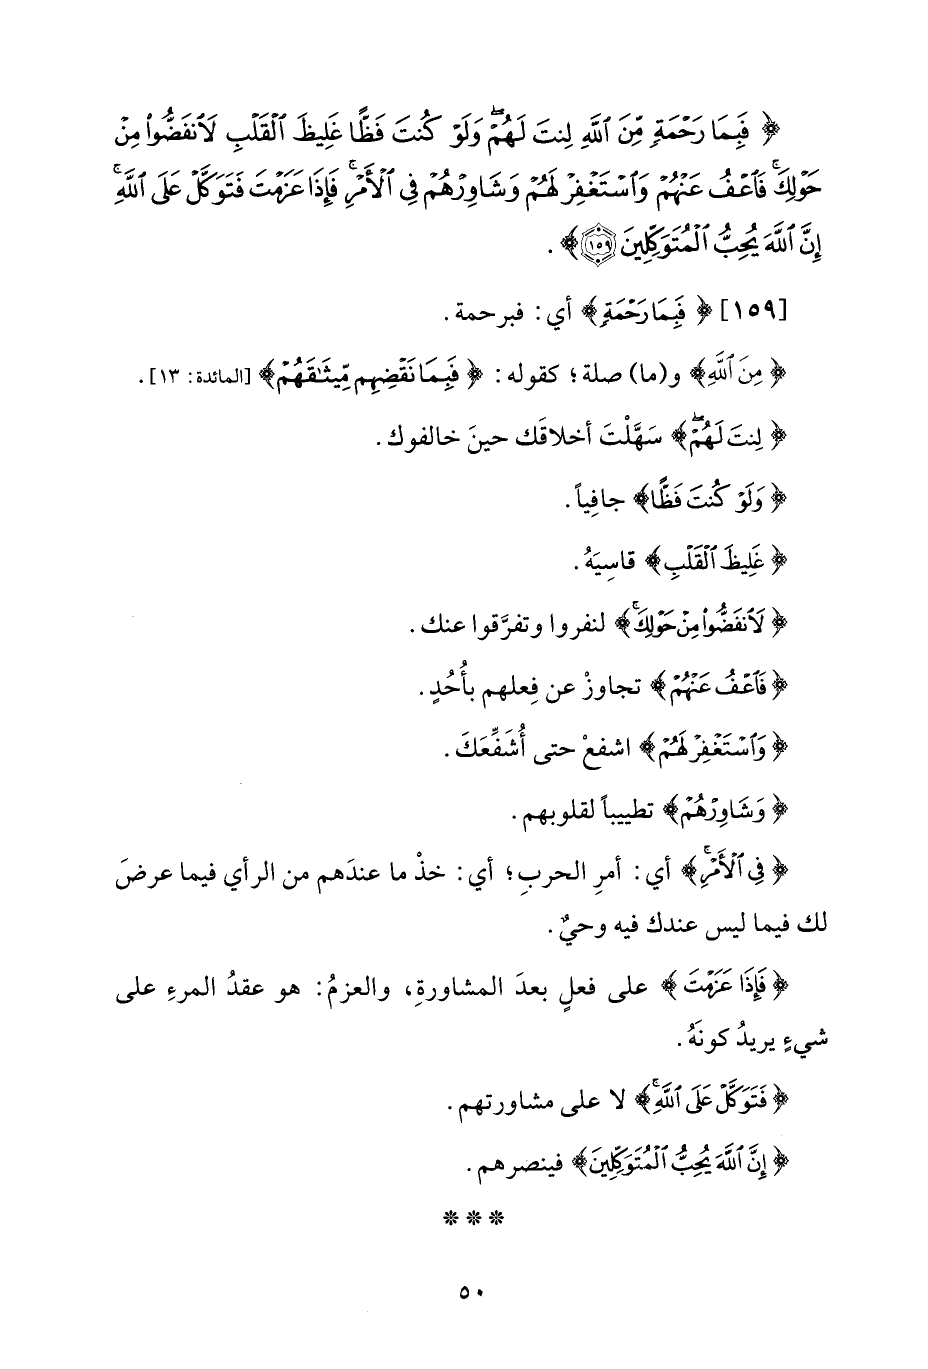 ﴿ فَبِمَا رَحْمَةٍ مِّنَ ٱللَّهِ لِنتَ لَهُمْ ۖ وَلَوْ كُنتَ فَظًّا غَلِيظَ ٱلْقَلْبِ لَٱنفَضُّوا۟ مِنْ
حَوْلِكَ ۖ فَٱعْفُ عَنْهُمْ وَٱسْتَغْفِرْ لَهُمْ وَشَاوِرْهُمْ فِى ٱلْأَمْرِ ۖ فَإِذَا عَزَمْتَ فَتَوَكَّلْ عَلَى ٱللَّهِ ۚ
إِنَّ ٱللَّهَ يُحِبُّ ٱلْمُتَوَكِّلِينَ ١٥٩ ﴾ .
[١٥٩] ﴿ فَبِمَا رَحْمَةٍ ﴾ أي : فبرحمة .
﴿ مِنَ ٱللَّهِ ﴾ و(ما) صلة ؛ كقوله : ﴿ فَبِمَا نَقْضِهِم مِّيثَٰقَهُمْ ﴾ [المائدة : ١٣] .
﴿ لِنتَ لَهُمْ ۖ ﴾ سَهَّلْتَ أخلاقَك حينَ خالفوك .
﴿ وَلَوْ كُنتَ فَظًّا ﴾ جافِياً .
﴿ غَلِيظَ ٱلْقَلْبِ ﴾ قاسِيَهُ .
﴿ لَٱنفَضُّوا۟ مِنْ حَوْلِكَ ۖ ﴾ لنفروا وتفرَّقوا عنك .
﴿ فَٱعْفُ عَنْهُمْ ﴾ تجاوزْ عن فِعلهم بأُحُدٍ .
﴿ وَٱسْتَغْفِرْ لَهُمْ ﴾ اشفعْ حتى أُشَفِّعَكَ .
﴿ وَشَاوِرْهُمْ ﴾ تطييباً لقلوبهم .
﴿ فِى ٱلْأَمْرِ ۖ ﴾ أي : أمرِ الحربِ ؛ أي : خذْ ما عندَهم من الرأي فيما عرضَ
لك فيما ليس عندك فيه وحيٌ .
﴿ فَإِذَا عَزَمْتَ ﴾ على فعلٍ بعدَ المشاورةِ، والعزمُ : هو عقدُ المرءِ على
شيءٍ يريدُ كونَهُ .
﴿ فَتَوَكَّلْ عَلَى ٱللَّهِ ۚ ﴾ لا على مشاورتهم .
﴿ إِنَّ ٱللَّهَ يُحِبُّ ٱلْمُتَوَكِّلِينَ ﴾ فينصرهم .
* * *
٥٠